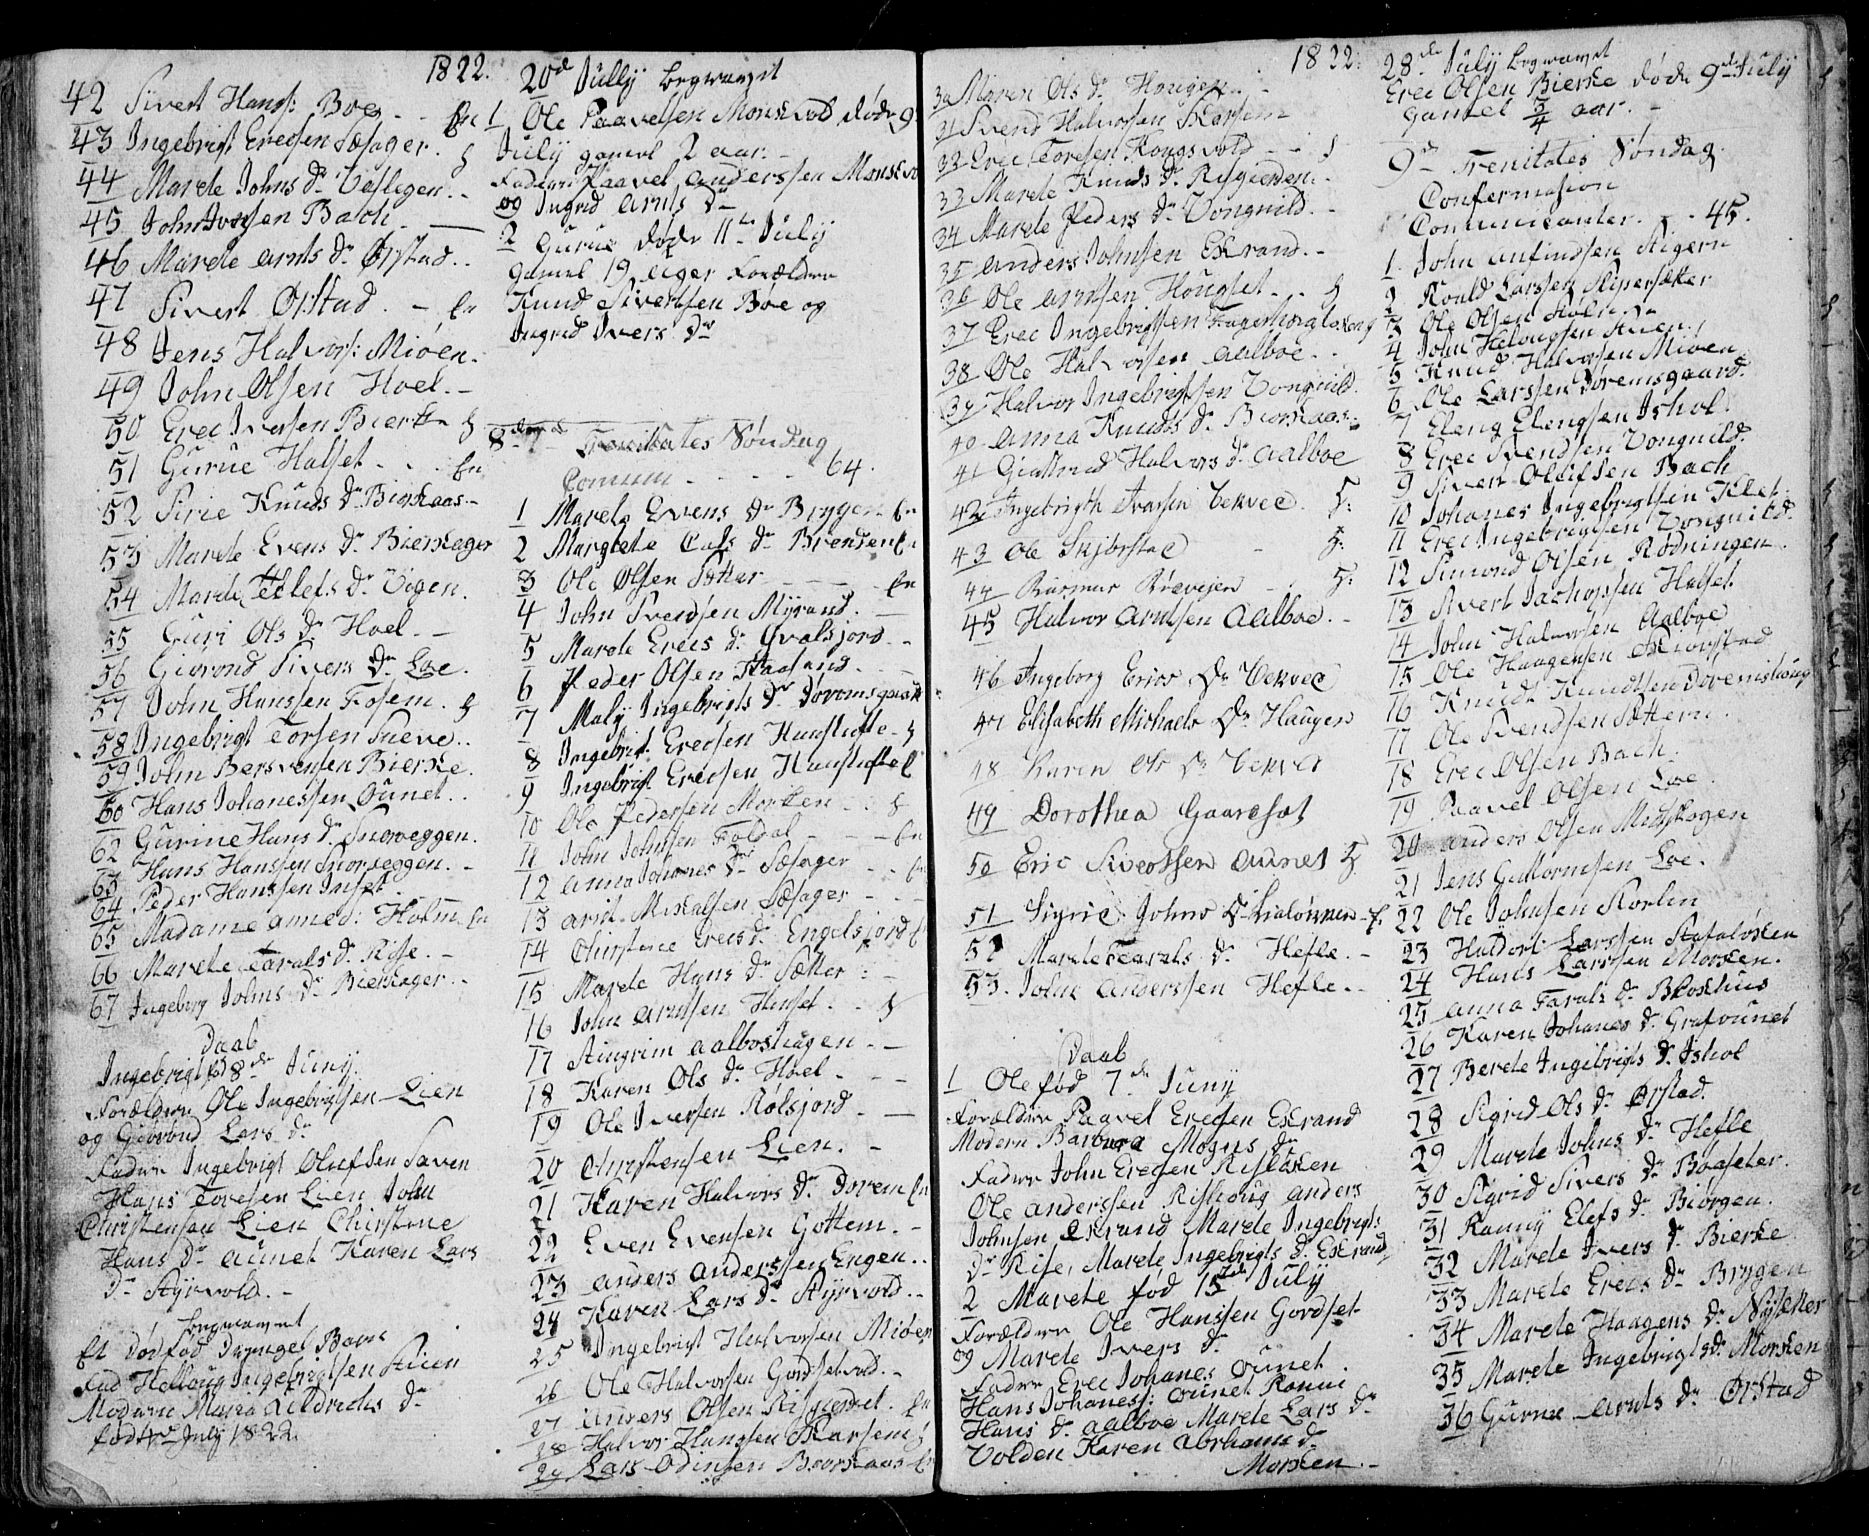 1822.
42 Sivert Hans: Boe - - En
43 Ingebrigt Erecsen Sæsager. §
44 Marete Johns Dr Veslegen. -
45 John Iversen Bach. -
46 Marete Arnts Dr Ørstad. .
47 Sivert Ørstad. - En
48 Jens Halvors: Mioen.
49 John Olsen Hoel. -
50 Erec Iversen Bierke §
51 Gurue Halset. . . En
52 Sirie Knuds Dr Biørkaas -
53 Marete Evens Dr Bierkager
54 Marete Dr Vigen.
55 Guri Ols Dr Hoel. -
56 Giorond Sivers Dr Loe.
57 John Hansen Fosem. §
58 Ingebrigt Torsen Sneve. .
59 John Bersvensen Bierke.
60 Hans Johanessen Ounet. .
62 Gurine Hans Dr Snoeveggen.
63 Hans Hanssen Snoeveggen. -
64 Peder Hanssen Inset.
65 Madame Holm En
66 Marete Taralds Dr Rise. -
67 Ingeborg Johns Dr Bierkager. .
Daab
Ingebrigt fød 8de Juny.
Forældre Ole Ingebrigtsen Lien
og Giørond Lars Dr
Fadere Ingebrigt Olufsen Sæven
Hans Toresen Lien John
Christensen Lien Chirstine
Hans Dr Aunet Karen Lars
Dr Styrvold. -
begravet
Et dødfød Drenge Barn
Fad Helloug Ingebrigtsen Stuen
Moderen Maria Dr
født July 1822.
20d Jully begravet
1 Ole Paavelsen Monsvold døde 9
July gamel 2 aar. -
Fadere Paavel Anderssen
og Ingrid Arnts Dr
2 Gurue døde 11te July
gamel 19 uger Forældre
Knud Sivertsen Boe og
Ingrid Ivers Dr
8de Trenitates Søndag
Comum - - - - 64.
1 Marete Evens Dr Brygen En
2 Margrete Dr Brenden En
3 Ole Olsen Sætter - - - En
4 John Svendsen Myrund. -
5 Marete Erecs Dr Qvalsjord. -
6 Peder Olsen Staaland. -
7 Maly Ingebrigts Dr Doromsgaard
8 Ingebrigt Erecsen Hunslufte §
9 Ingebrigt Erecsen Hunslufte §
10 Ole Pedersen Morken - . §
11 John Johnsen Foldal - - - En
12 Anna Johanes Dr Sæsager - . En
13 Arnt Mikalsen Sæsager - - -
14 Chirstine Erecs Dr Engelsjord
15 Marete Hans Dr Sætter : -
16 John Arntsen Hinset. . §
17 Stingrim Aalboshagen. -
18 Karen Ols Dr Hoel - - -
19 Ole Iversen Rolsjord. -
20 Christensen Lien. -
21 Karen Halvors Dr Dorem En
22 Even Evensen Gottem. -
23 Anders Anderssen Engen. .
24 Karen Lars Dr Styrvold. .
25 Ingebrigt Halvorsen Mioen
26 Ole Halvorsen Gordsetvold. -
27 Anders Olsen En
28 Halvor Hanssen Skarsem §
29 Lars Odinsen Biorkaas En
1822.
30 Maren Ols Dr Hougen. . -
31 Svend Halvorsen Skarsem
32 Erec Toresen Kongsvold - - §
33 Marete Knuds Dr
34 Marete Peders Dr Vongnild. .
35 Anders Johnsen Ekrand. -
36 Ole Arntsen Hougset. . §
37 Erec Ingebrigtsen
38 Ole Halvorsen Aalboe. .
39 Halvor Ingebrigtsen Vongnild.
40 Anna Knuds Dr Biorkaas. -
41 Giertrud Halvors Dr Aalboe
42 Ingebrigth Ivarsen Vekvee. §:
43 Ole Skjørstad - §:
44 Rasmus - . §:
45 Halvor Arntsen Aalboe. -
46 Ingeborg Erics Dr Vekvee
47 Elisabeth Michaels Dr Haugen
48 Karen Ols Dr Vekvee
49 Dorothea Gaardsat
50 Eric Sivertsen Aunet §.
51 Sigrie Johns Dr
52 Marete Taralds Dr Hefle. -
53. John Anderssen Hefle. .
Daab
1 Ole fød 7de Juny
Forældre Paavel Erecsen Ekrand
Moderen Barbara Mogns Dr
Fadere John Erecsen Risløkken
Ole Anderssen Rishoug Anders
Johnsen Ekrand Marete Ingebrigts
Dr Rise, Marete Ingebrigts Dr Ekrand
2 Marete fød 15de July
Forældre Ole Hanssen Gordset
og Marete Ivers Dr
Fadere Erec Johanes Ounet.
Hans Johaness: Ounet
Hans Dr Aalboe Marete Lars Dr
Volden Karen Abrhams Dr
Morken. -
28de July begravet
Erec Olsen Bierke døde 9de July
Gamel 3/4 aar. -
9de Trenitates Søndag.
Confermasion
Comunicanter. . . 45.
1. John Anfindsen Stigern
2 Roald Larssen Stipersætter
3 Ole Olsen
4 John Helougsen Stuen.
5 Knud Halvorsen Mioen
6 Ole Larssen Doremsgaard.
7 Eleng Elengsen Ishol
8 Erec Svendsen Vongnild.
9 Sivert Olufsen Bach
10 Johanes Ingebrigtsen Klet.
11 Erec Ingebrigtsen Vongnild.
12 Simond Olsen Rodningen.
13 Sivert Jachopsen Halset
14 John Halvorsen Aalboe
15 Ole Haagensen Skiorstad
16 Knudt Knudtsen Doremshaug
17 Ole Svendsen Sættern.
18 Erec Olsen Bach.
19 Paavel Olsen Loe.
20 Anders Olsen Mellskogen
21 Jens Guttormsen Loe.
22 Ole Johnsen
23 Haldor Larssen
24 Hans Larssen Morken.
25 Anna Taralds Dr Blokhus
26 Karen Johanes Dr
27 Berete Ingebrigts Dr Ishol
28 Sigrid Ols Dr Ørstad.
29 Marete Johns Dr Hefle
30 Sigrid Sivers Dr Baaseter.
31 Ranny Elefs Dr Biorgen.
32 Marete Ivers Dr Bierke
33 Marete Erecs Dr Brygen
34 Marete Haagens Dr Nysetter
35 Marete Ingebrigts Dr Morken
36 Gurue Arnts Dr Ørstad